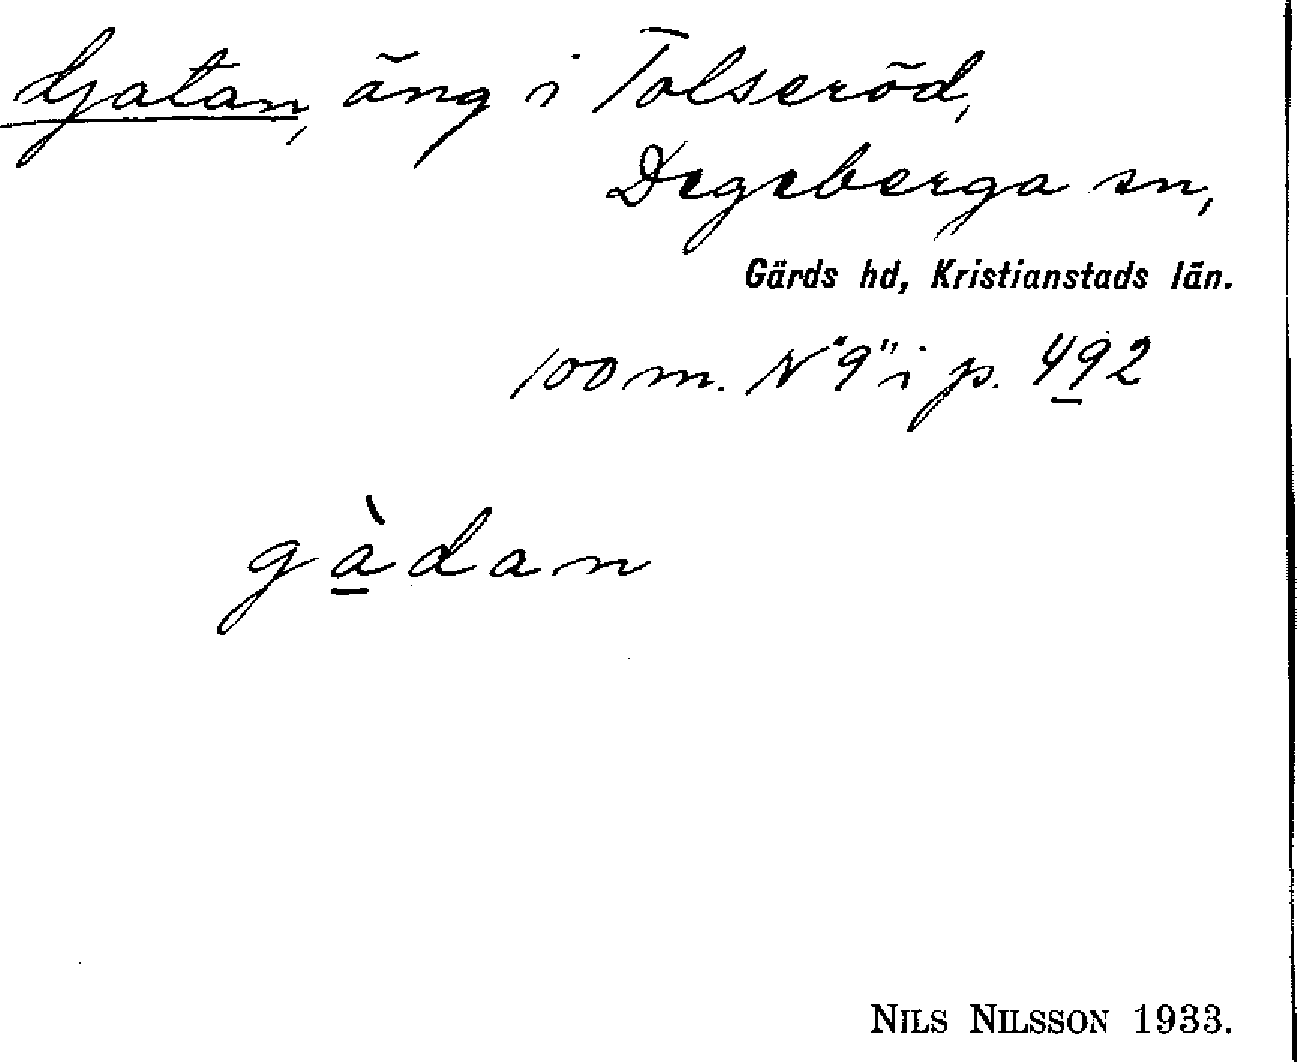 Gatan, äng i Tolseröd,
Degeberga sn,
Gärds hd, Kristianstads län.
100 m. N "9" i p. 492
gàdan
NILS NILSSON 1933.